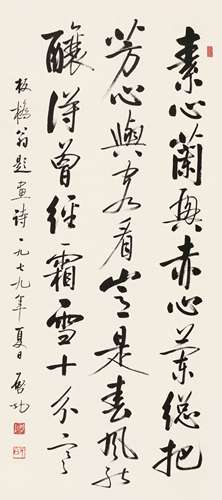 素心蘭與赤心蘭總把
芳心與客看豈是春風能
釀得曾經霜雪十分寒
板橋翁題畫詩一九七九年夏日 啟功